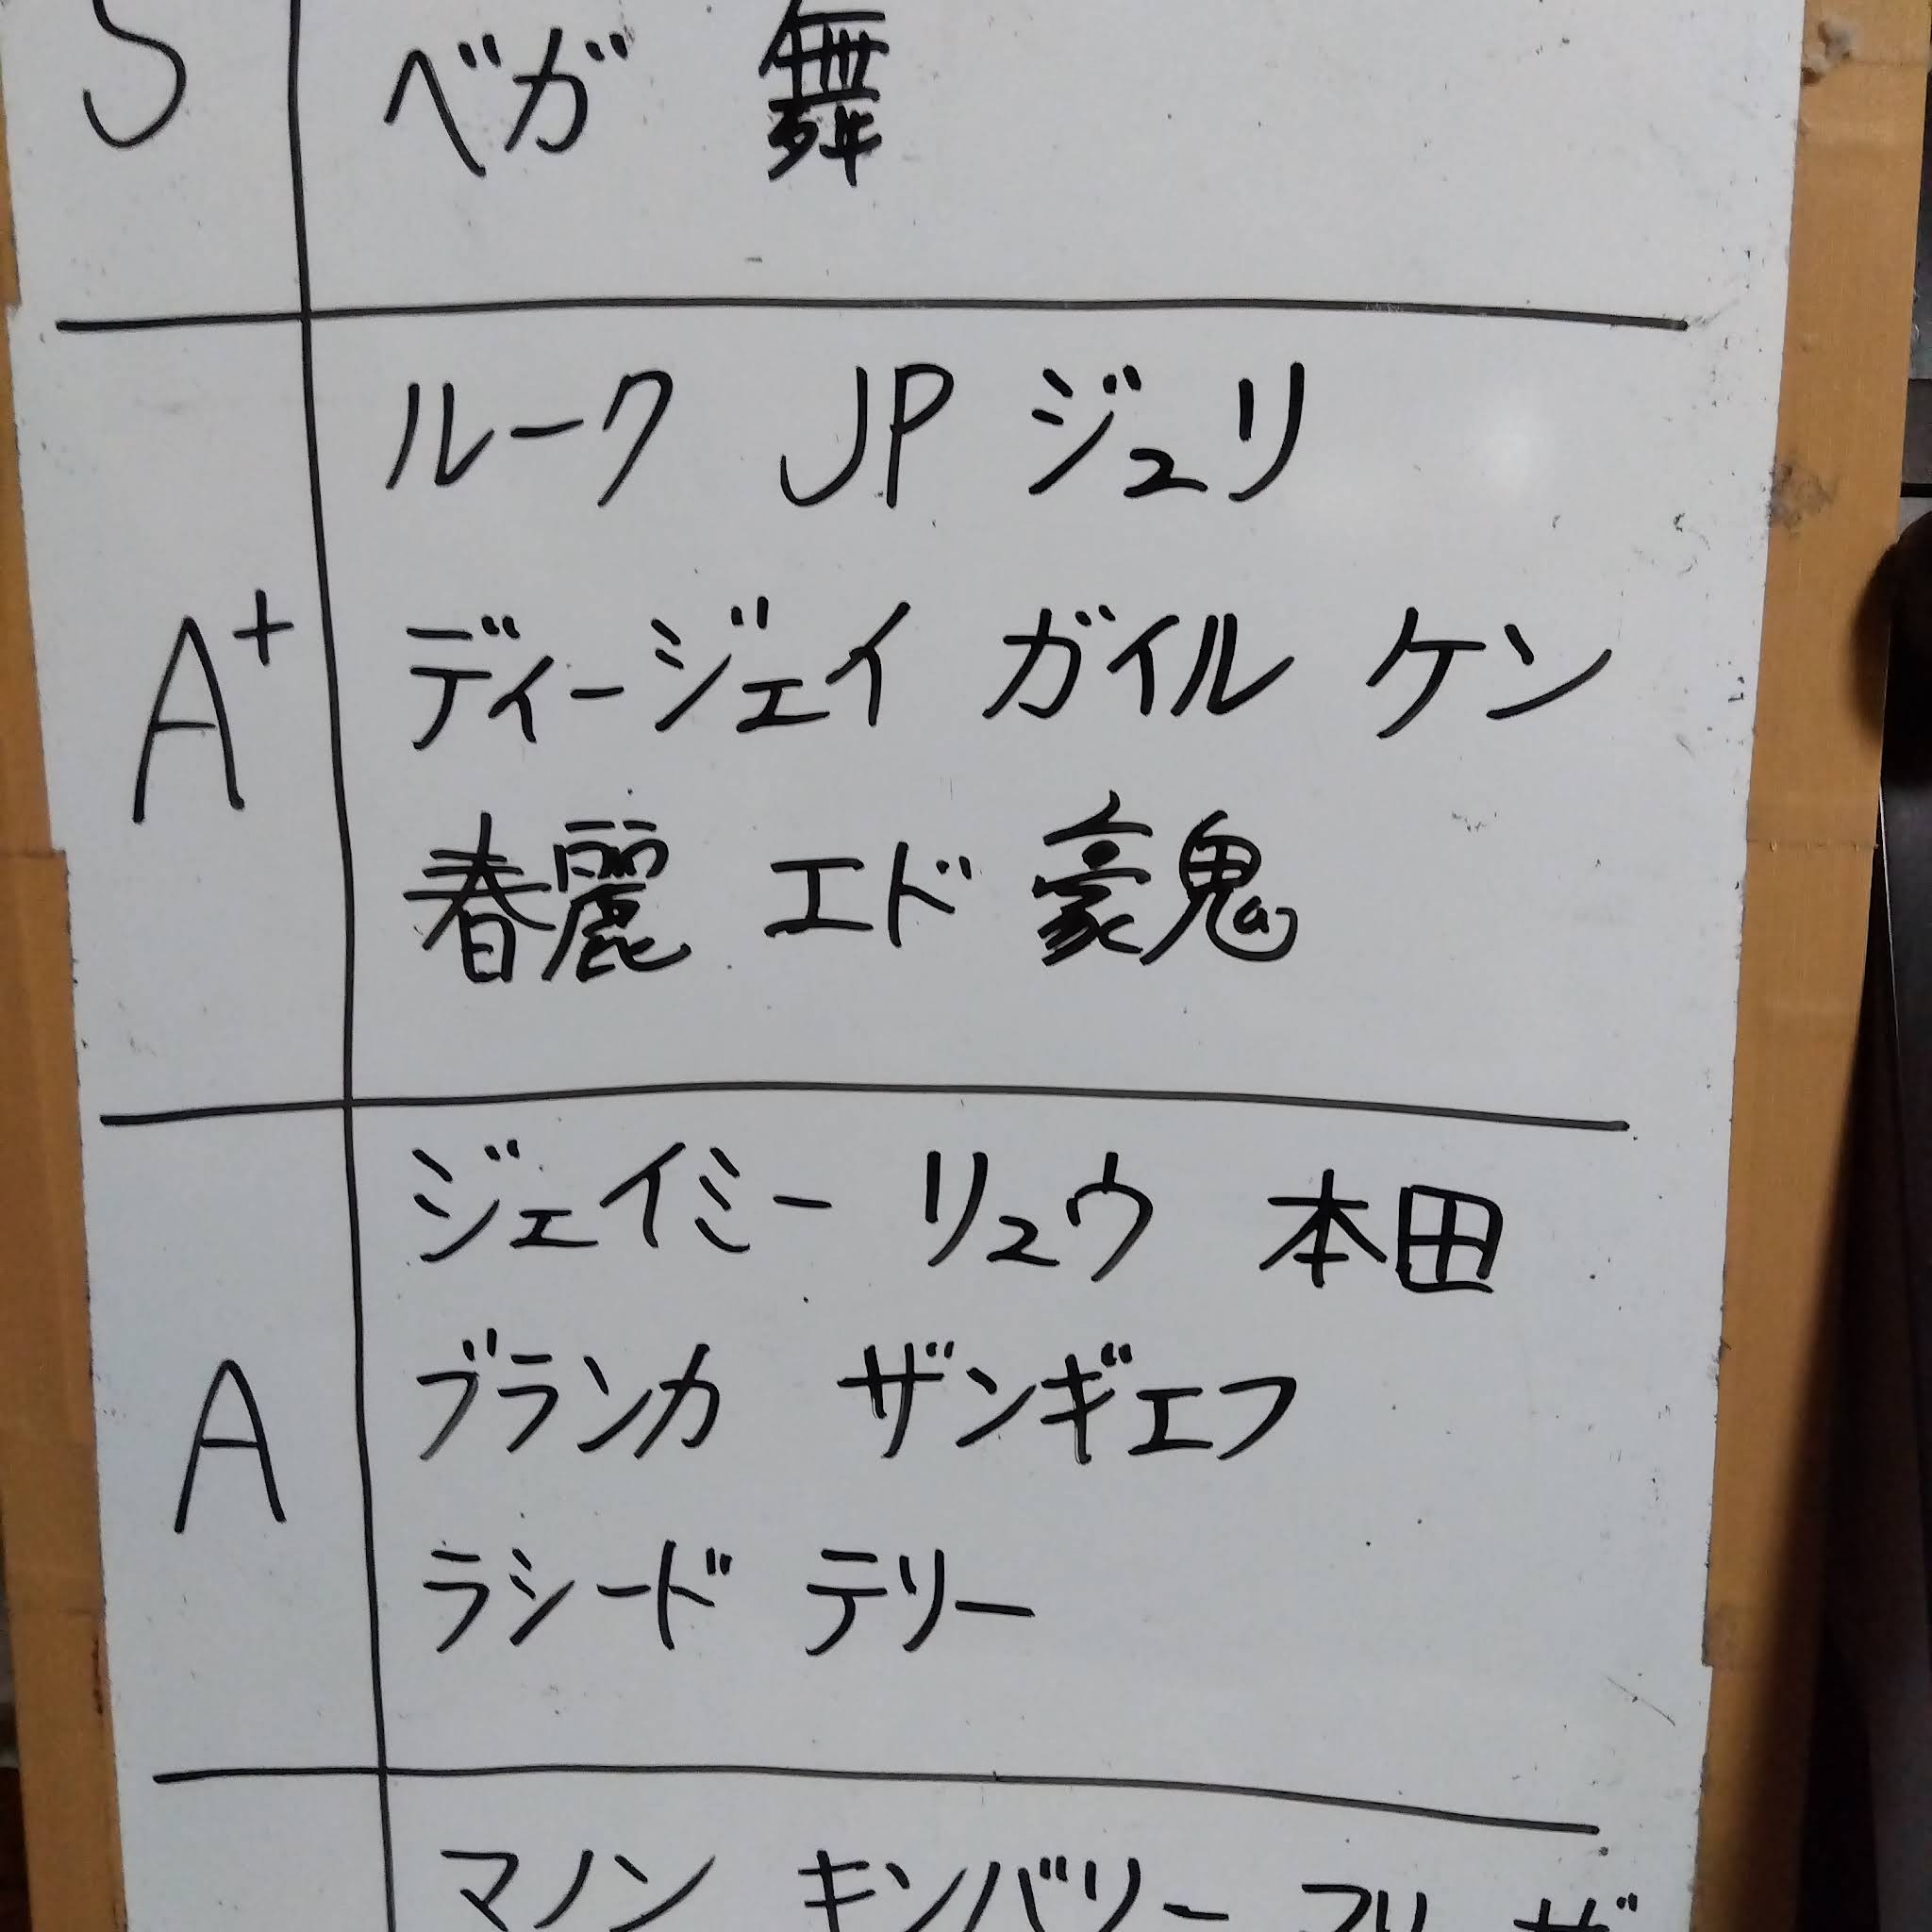 S ベガ 舞
ルーク JP ジュリ
A+ ディージェイ ガイル ケン
春麗 エド 豪鬼
ジェイミー リュウ 本田
A ブランカ ザンギエフ
ラシード テリー
マノン キンバリー